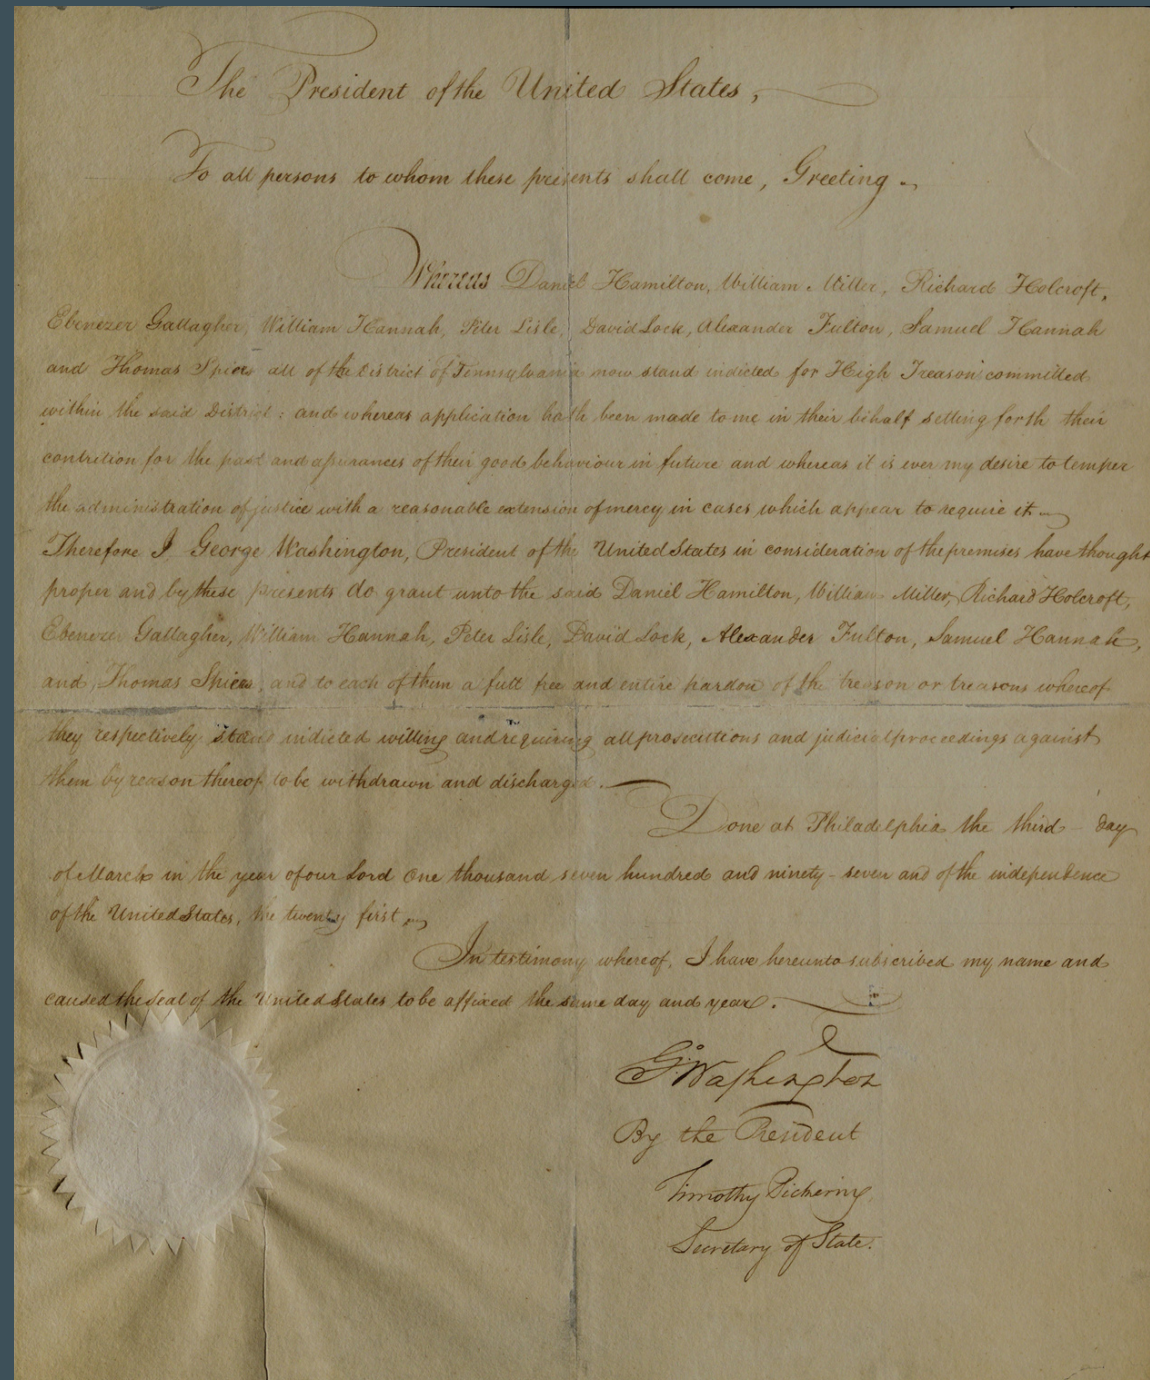 The President of the United States,
To all persons to whom these presents shall come, Greeting
Whereas Daniel Hamilton, William Miller, Richard Holcroft,
Ebenezer Gallagher, William Hannah, Peter Lisle, David Lock, Alexander Fulton, Samuel Hannah
and Thomas Spiers all of the District of Pennsylvania now stand indicted for High Treason committed
within the said District: and whereas application hath been made to me in their behalf setting forth their
contrition for the past and assurances of their good behaviour in future and whereas it is ever my desire to temper
the administration of justice with a reasonable extension of mercy in cases which appear to require it
Therefore I George Washington, President of the United States in consideration of the premises have thought
proper and by these presents do grant unto the said Daniel Hamilton, William Miller, Richard Holcroft,
Ebenezer Gallagher, William Hannah, Peter Lisle, David Lock, Alexander Fulton, Samuel Hannah,
and Thomas Spiers, and to each of them a full free and entire pardon of the treason or treasons whereof
they respectively stand indicted willing and requiring all prosecutions and judicial proceedings against
them by reason thereof to be withdrawn and discharged.
Done at Philadelphia the third day
of March in the year of our Lord One thousand seven hundred and ninety-seven and of the independence
of the United States, the twenty first
In testimony whereof, I have hereunto subscribed my name and
caused the Seal of the United States to be affixed the same day and year.
Go: Washington
By the President
Timothy Pickering,
Secretary of State.